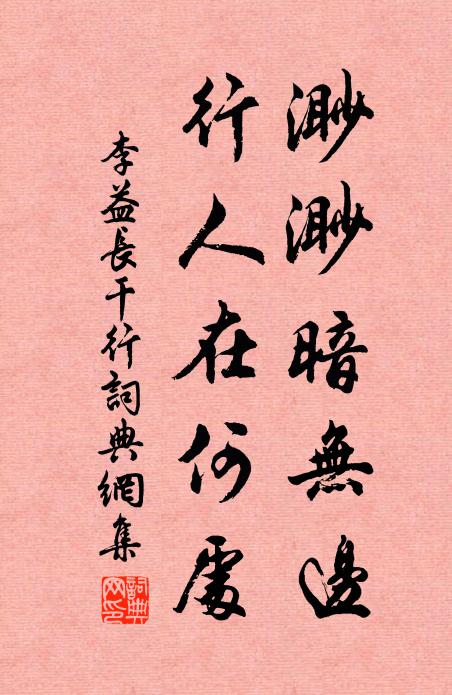 渺渺暗無邊
行人在何處
李益長干行詞典網集
詞典網印